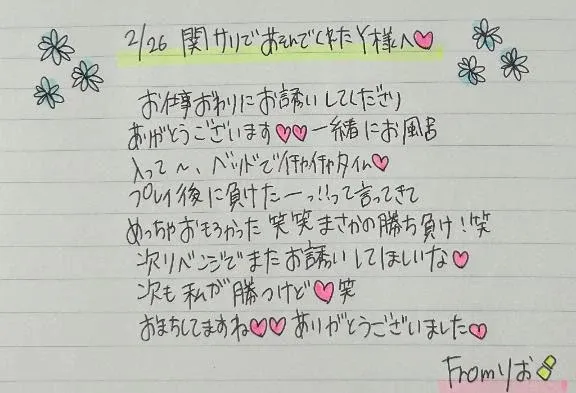 2/26 関サリであそんでくれたY様へ♡
お仕事おわりにお誘いしてくださり
ありがとうございます♡♡一緒にお風呂
入って〜、ベッドでイチャイチャタイム♡
プレイ後に負けたーっ!!って言ってきて
めっちゃおもろかった笑笑まさかの勝ち負け!笑
次リベンジでまたお誘いしてほしいな♡
次も私が勝つけど♡笑
おまちしてますね♡♡ありがとうございました♡
Fromりお